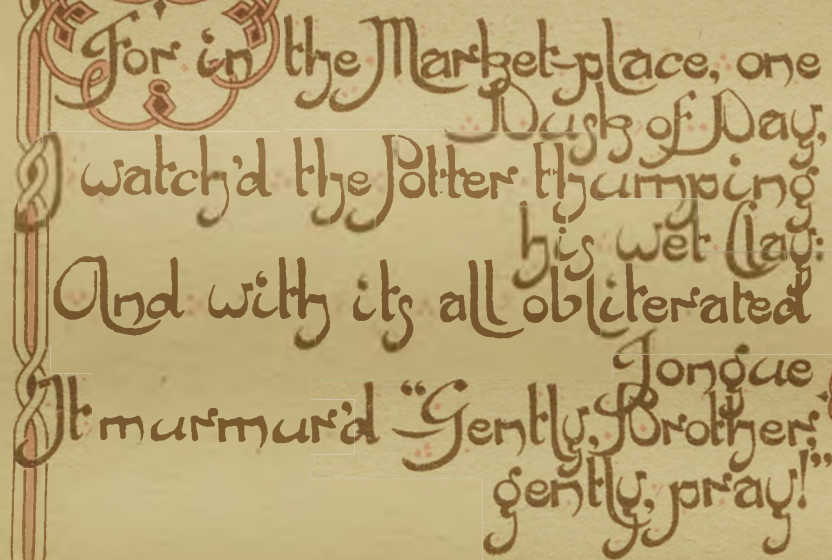 For in the Market-place, one
Dusk of Day,
I watch'd the Potter thumping
his wet Clay:
And with its all obliterated
Tongue
It murmur'd “Gently, Brother,
gently, pray!”